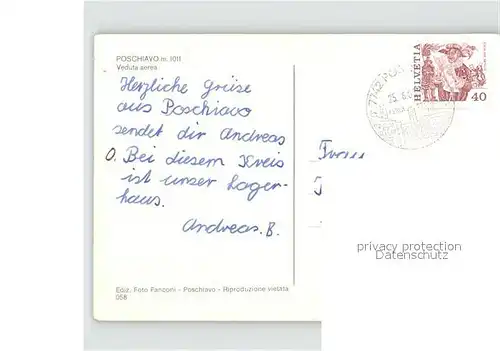 POSCHIAVO m. 1011
Veduta aerea
Herzliche Grüse
aus Poschiavo
sendet dir Andreas
O. Bei diesem Kreis
ist unser Lager-
haus.
Andreas. B.
HELVETIA
40
7742 POS
privacy protection
Datenschutz
Ediz. Foto Fanconi - Poschiavo - Riproduzione vietata
058